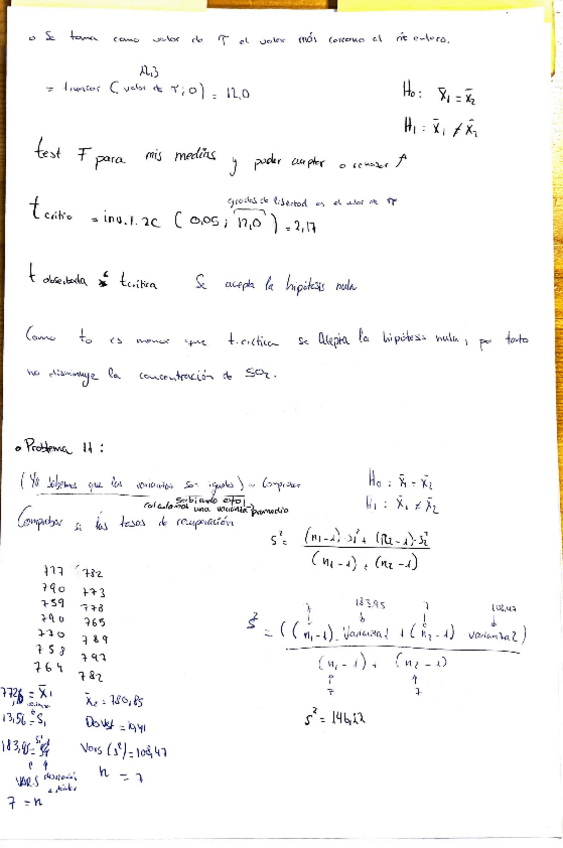 o Se toma como valor de τ el valor más cercano al nº entero.
12,3
= truncar ( valor de τ ; 0 ) = 12,0
H₀ : x̄₁ = x̄₂
H₁ : x̄₁ ≠ x̄₂
test F para mis medias y poder aceptar o rechazar
grados de libertad es el valor de τ
t critico = inv.t.2c ( 0,05 ; 12,0 ) = 2,17
t observada < t critica Se acepta la hipótesis nula
Como to es menor que t.critica se acepta la hipótesis nula, por tanto
no disminuye la concentración de SO₂.
o Problema 11 :
(Ya sabemos que las varianzas son iguales) - Comprobar
H₀ : x̄₁ = x̄₂
H₁ : x̄₁ ≠ x̄₂
sabiendo esto,
calculamos una varianza promedio
Comprobar si las tasas de recuperación
s² = (n₁-1)·s₁² + (n₂-1)·s₂²
(n₁-1) + (n₂-1)
777 782
790 773
759 778
790 765
770 789
758 797
764 782
7 183,95 7 108,47
s² = ((n₁-1)· varianza1 + (n₂-1) varianza2)
(n₁-1) + (n₂-1)
7 7
s² = 146,22
= x̄₁
x̄₂ = 780,85
13,56 = S₁
Dsvst = 10,41
183,95 = s²
Vars (s²) = 108,47
VARS
n = 7
7 = n